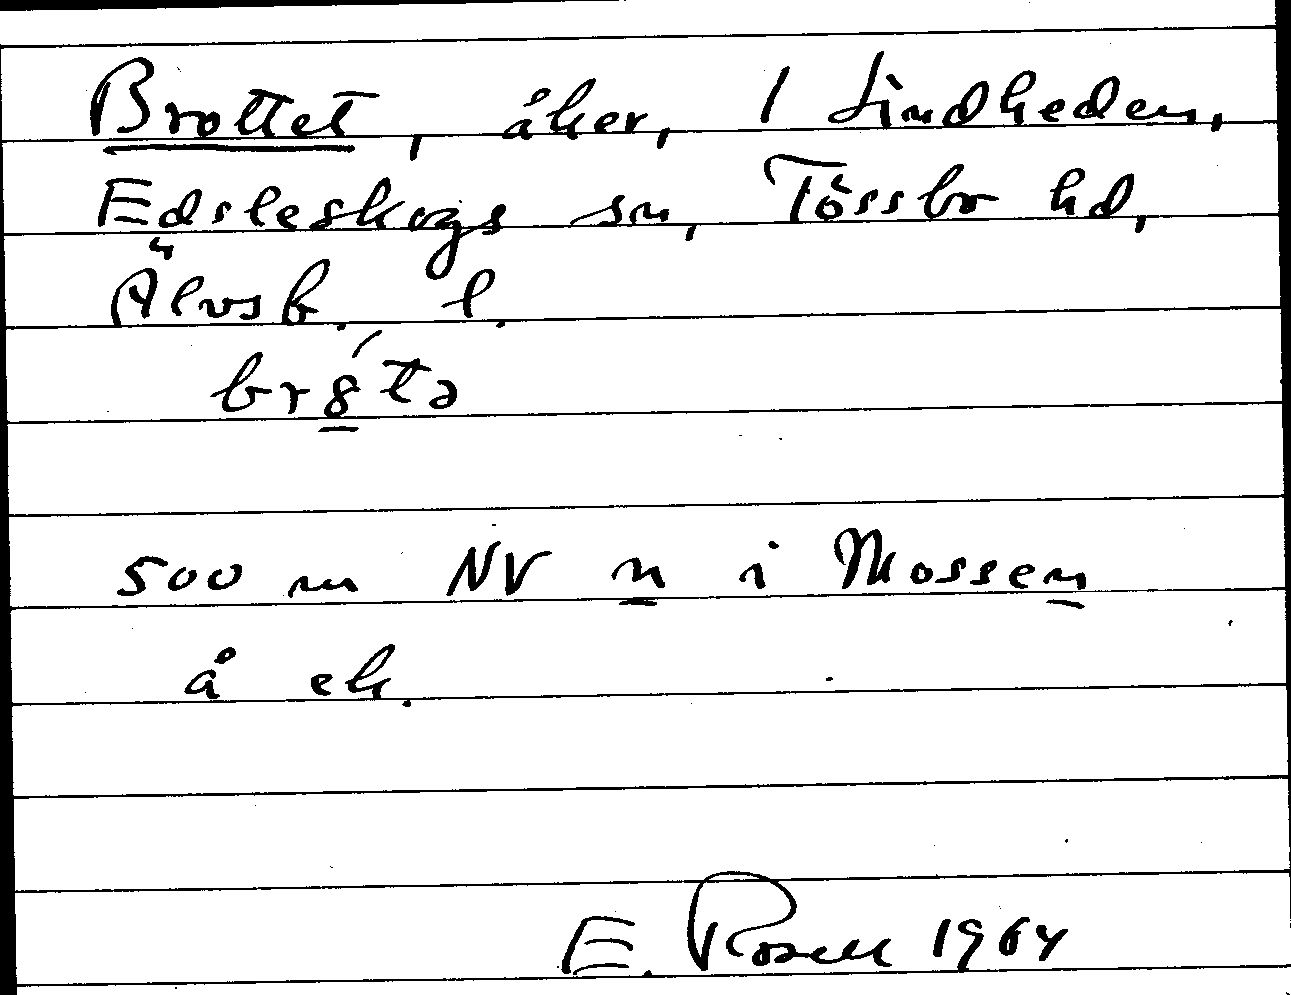 Brottet, åker, 1 Lindheden,
Edsleskogs sn, Tössbo hd,
Älvsb. l.
br8́tə
500 m NV n i Mossen
å ek.
E. Rosell 1964